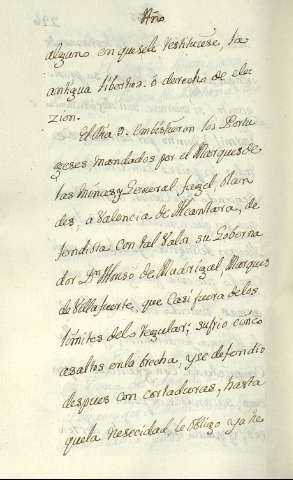 Año
alguno en quesele restituiese, la
antigua libertad. ô derecho de ele-
zion.
El dia 9. embistieron los Portu
geses mandados por el Marques de
las Minas y General Fagel olan
des, a Valencia de Alcantara, de
fendiola con tal valor su Goberna
dor Dⁿ Alonso de Madrigal Marques
de Villafuerte, que Casi fuera delos
limites delo regular; sufrio cinco
asaltos enla brecha, y se defendio
despues con cortaduras, hasta
quela necesidad, le obligo a